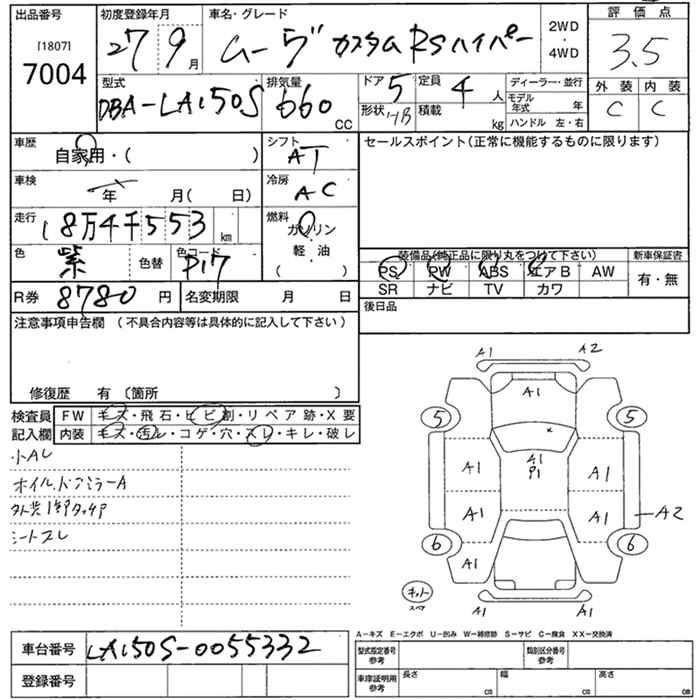 出品番号 初度登録年月 車名・グレード 評価点
[1807]
7004 27 9月 ムーヴ カスタム RSハイパー 2WD ・ 4WD 3.5
型式 排気量 ドア 5 定員 4人 ディーラー・並行 外装 内装
DBA-LA150S 660 CC 形状 HB 積載 kg モデル年式 年 C C
ハンドル 左・右
車歴 自家用・( ) シフト AT セールスポイント(正常に機能するものに限ります)
車検 年 月( 日) 冷房 AC
走行 18万4千553 km 燃料 ガソリン
軽・油
( )
色 紫 色替 色コード P17
装備品(純正品に限り丸をつけて下さい) 新車保証書
PS PW ABS エアB AW 有・無
SR ナビ TV カワ
R券 8780 円 名変期限 月 日 後日品
注意事項申告欄 (不具合内容等は具体的に記入して下さい)
修復歴 有 〔箇所 〕
検査員 FW キズ・飛石・ヒビ割・リペア跡・X要
記入欄 内装 キズ・汚レ・コゲ・穴・スレ・キレ・破レ
小AL
ホイル.ドアミラーA
外装1部タッチP
シートスレ
A1 A2
A1
5 5
A1
P1
A1 A1
A1 A1 A2
6 6
A1
キット
スペア
A1 A1
A-キズ E-エクボ U-凹み W-補修跡 S-サビ C-腐食 XX-交換済
車台番号 LA150S-0055332 型式指定番号 参考 類別区分番号 参考
登録番号 車庫証明用 参考 長さ cm 幅 cm 高さ cm